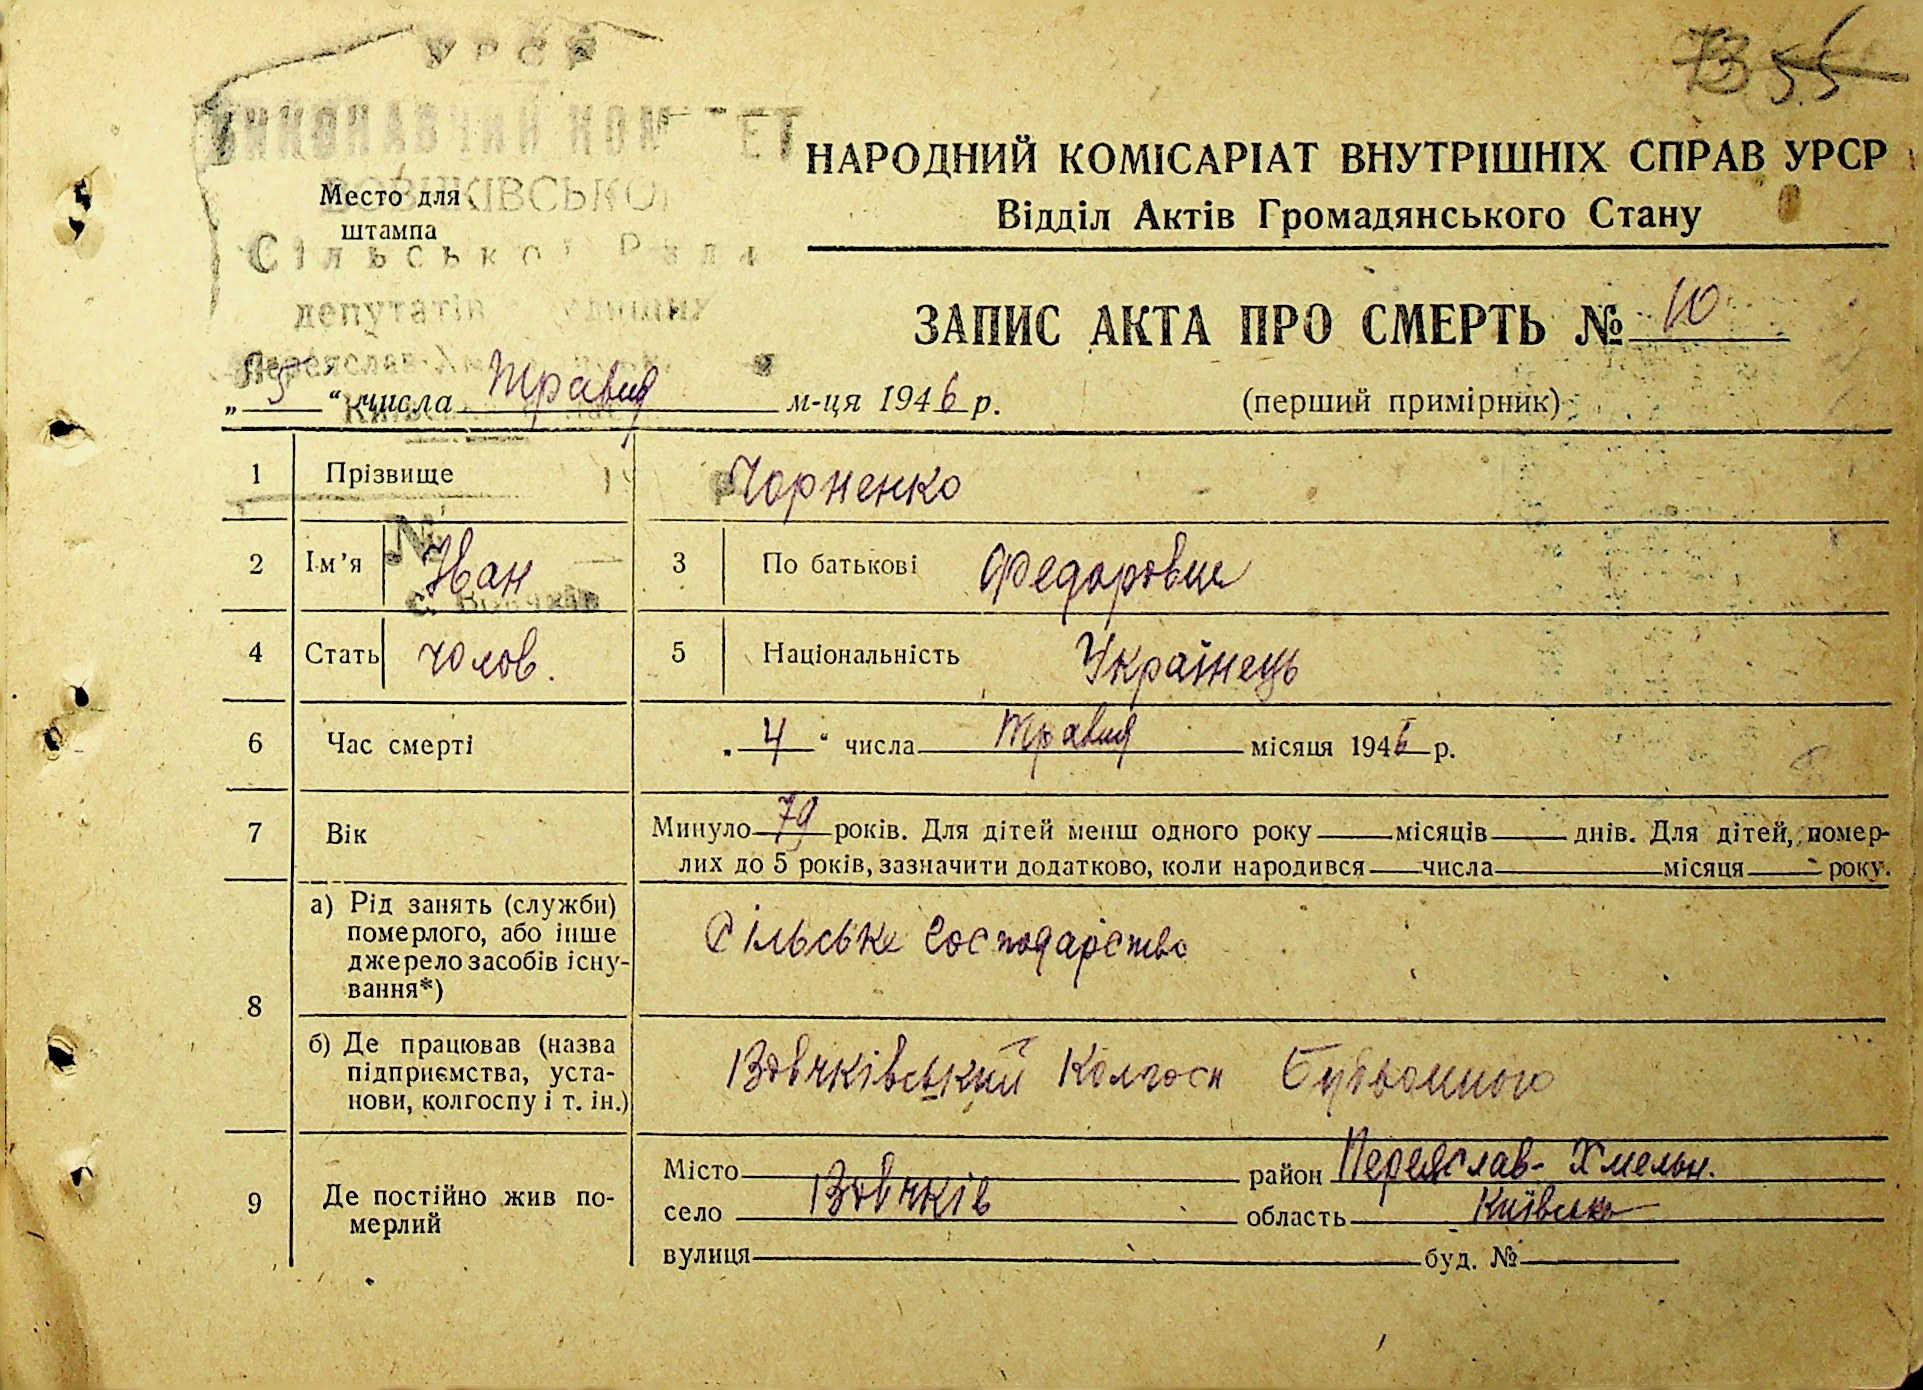 УРСР
ВИКОНАВЧИЙ КОМІТЕТ
ВОВЧКІВСЬКОЇ
Сільської Ради
депутатів
Место для
штампа
73 55
НАРОДНИЙ КОМІСАРІАТ ВНУТРІШНІХ СПРАВ УРСР
Відділ Актів Громадянського Стану
ЗАПИС АКТА ПРО СМЕРТЬ № 10
„ 5 “ числа травня м-ця 1946 р. (перший примірник)
1 Прізвище Чорненко
2 Ім'я Іван 3 По батькові Федорович
4 Стать чолов. 5 Національність Українець
6 Час смерті „ 4 “ числа травня місяця 1946 р.
7 Вік Минуло 79 років. Для дітей менш одного року місяців днів. Для дітей, помер-
лих до 5 років, зазначити додатково, коли народився числа місяця року.
8 а) Рід занять (служби)
померлого, або інше
джерело засобів існу-
вання*)
Сільське господарство
б) Де працював (назва
підприємства, уста-
нови, колгоспу і т. ін.)
Вовчківський Колгосп
9 Де постійно жив по-
мерлий
Місто район Переяслав-Хмельн.
село Вовчків область Київська
вулиця буд. №